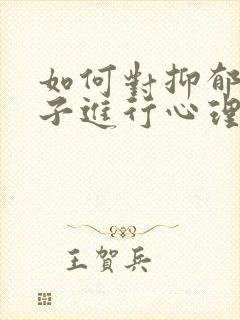 如何對抑郁
子進行心理
王賀兵